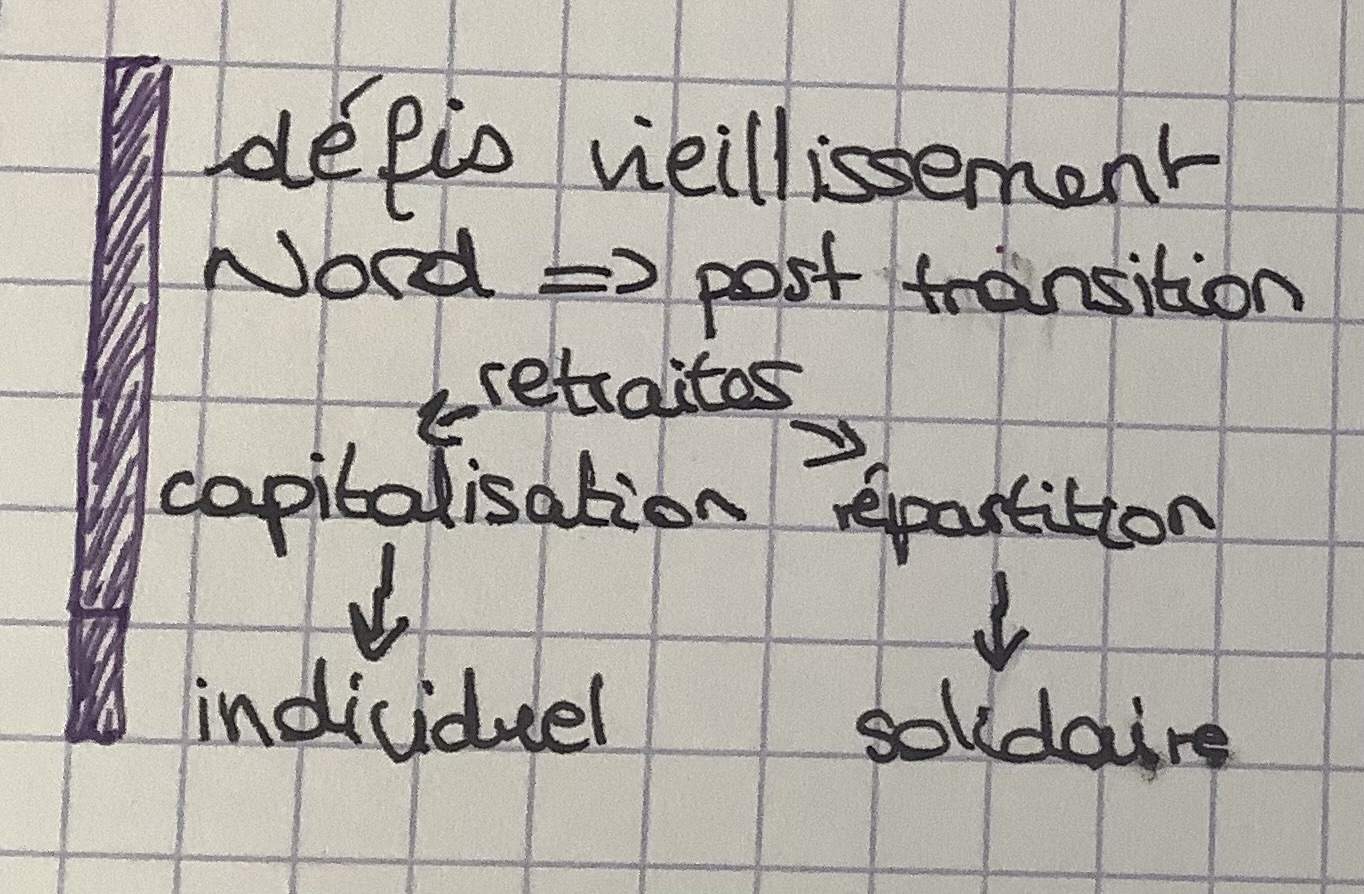 défis vieillissement
Nord => post transition
← retraites →
capitalisation répartition
↓ ↓
individuel solidaire